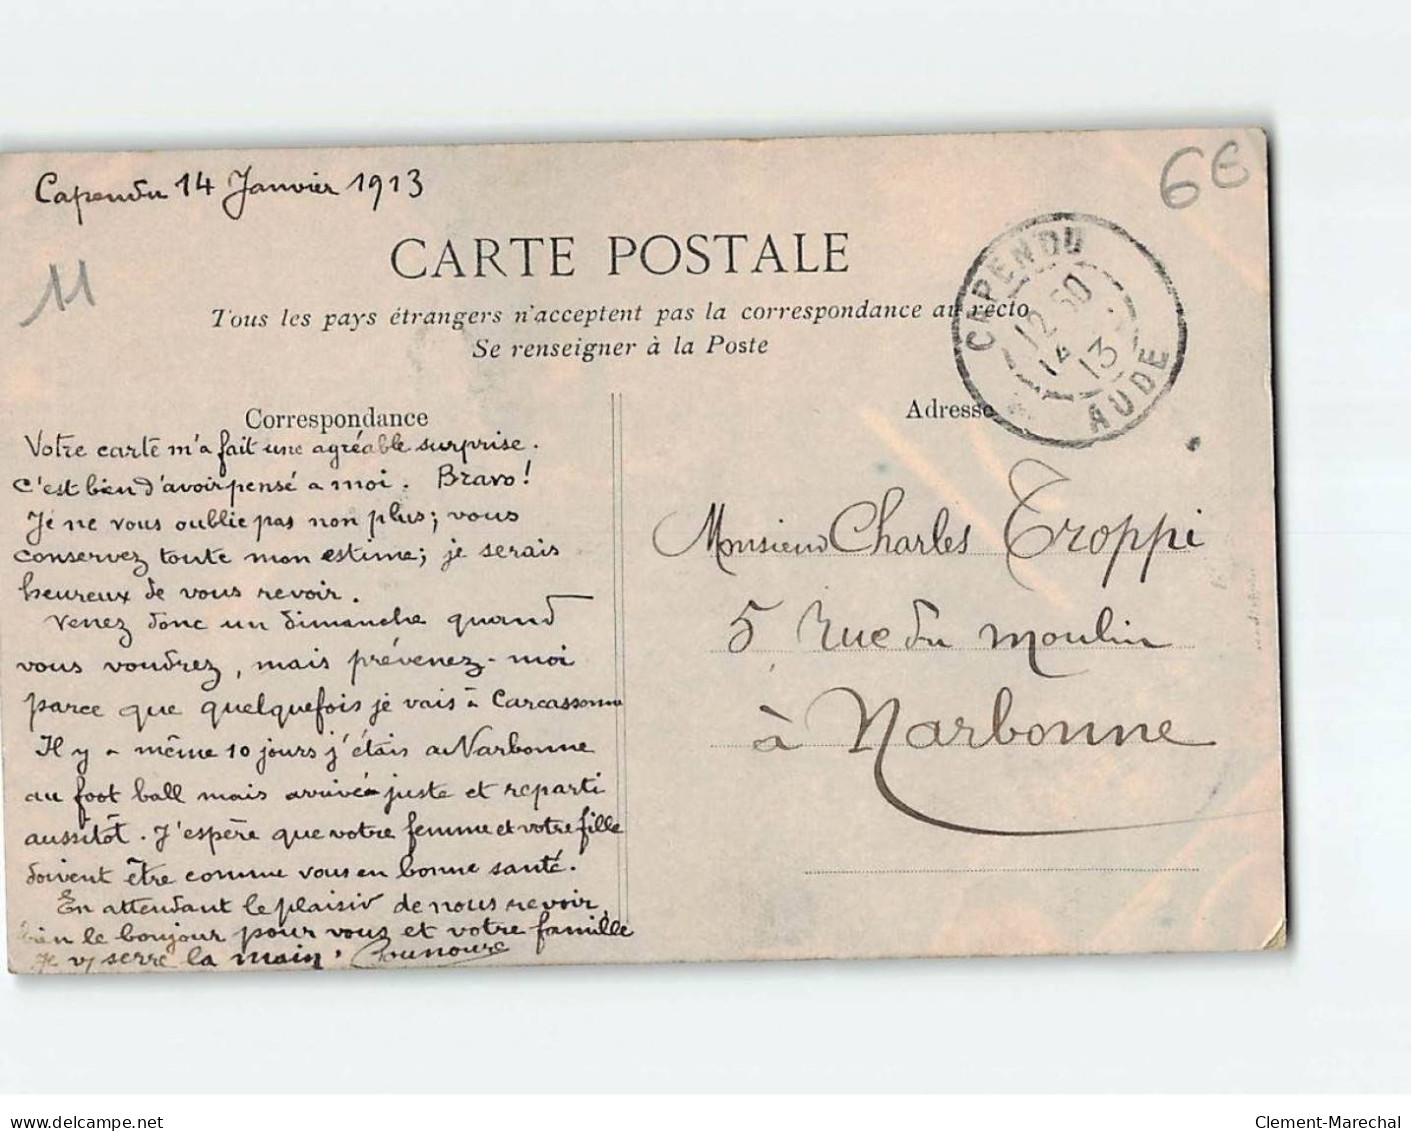 Capendu 14 Janvier 1913
6€
11
CARTE POSTALE
Tous les pays étrangers n'acceptent pas la correspondance au recto
Se renseigner à la Poste
CAPENDU
12 50
14
13
AUDE
Correspondance
Votre carte m'a fait une agréable surprise.
C'est bien d'avoir pensé a moi. Bravo!
Je ne vous oublie pas non plus; vous
conservez toute mon estime; je serais
heureux de vous revoir.
Venez donc un dimanche quand
vous voudrez, mais prévenez-moi
parce que quelquefois je vais à Carcassonne
Il y a même 10 jours j'étais a Narbonne
au foot ball mais arrivé juste et reparti
aussitôt. J'espère que votre femme et votre fille
doivent être comme vous en bonne santé.
En attendant le plaisir de nous revoir,
bien le bonjour pour vous et votre famille
Je vs serre la main.
Adresse
Monsieur Charles Troppi
5, Rue du Moulin
à Narbonne
www.delcampe.net
Clement-Marechal